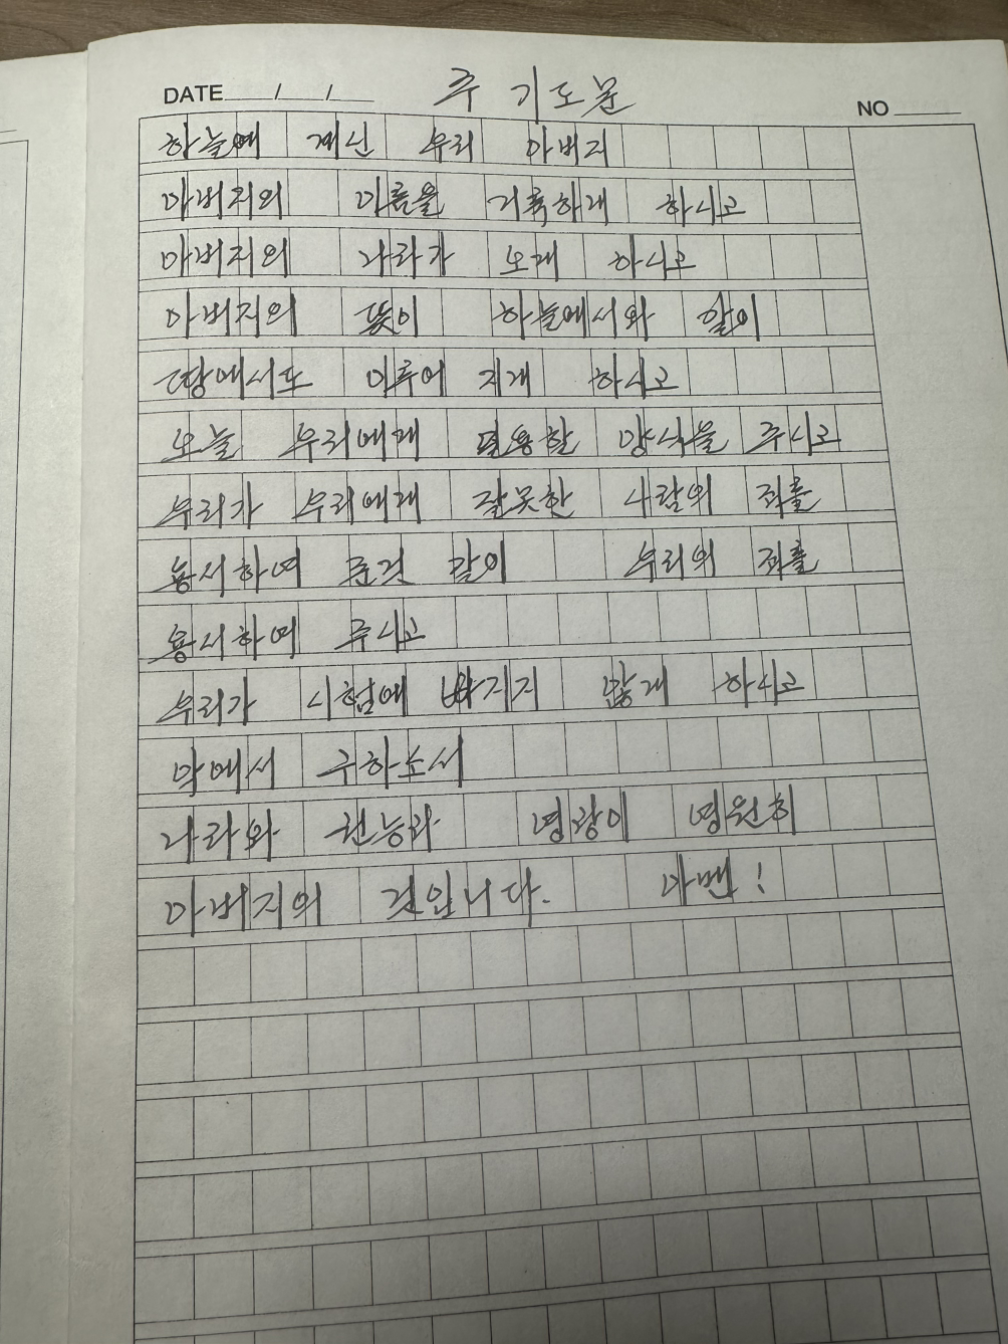 DATE / / 주기도문 NO
하늘에 계신 우리 아버지
아버지의 이름을 거룩하게 하시고
아버지의 나라가 오게 하시고
아버지의 뜻이 하늘에서와 같이
땅에서도 이루어 지게 하시고
오늘 우리에게 필용할 양식을 주시고
우리가 우리에게 잘못한 사람의 죄를
용서하여 준것 같이 우리의 죄를
용서하여 주시고
우리가 시험에 빠지지 않게 하시고
악에서 구하소서
나라와 권능과 영광이 영원히
아버지의 것입니다. 아멘!